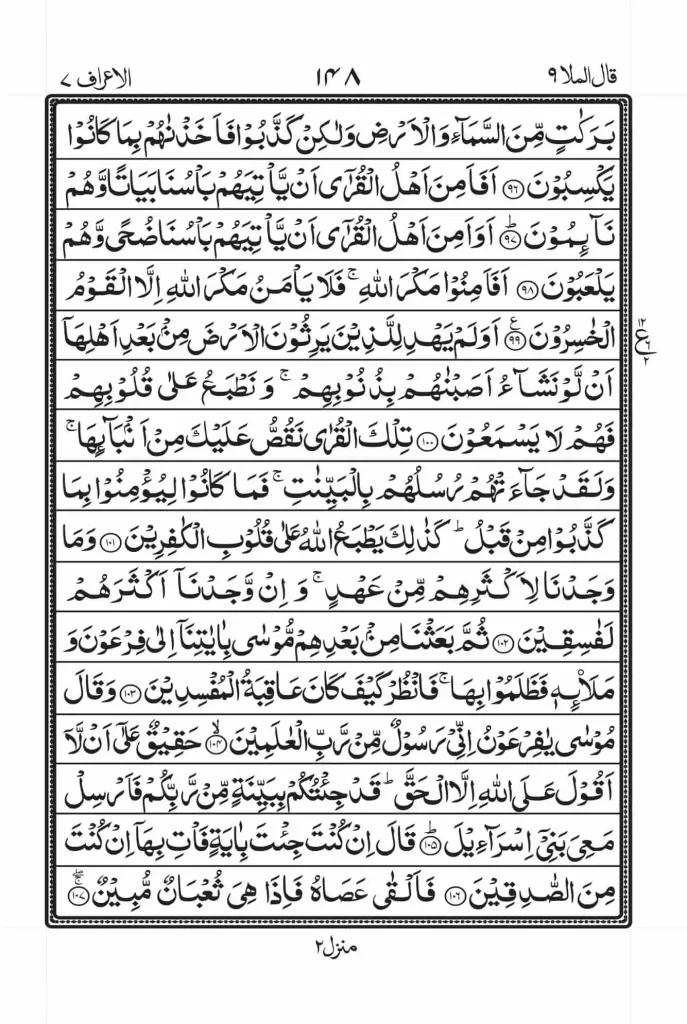 قال الملا ٩
١٤٨
الاعراف ٧
بَرَكٰتٍ مِّنَ السَّمَآءِ وَالْاَرْضِ وَلٰكِنْ كَذَّبُوْا فَاَخَذْنٰهُمْ بِمَا كَانُوْا
يَكْسِبُوْنَ ﴿٩٦﴾ اَفَاَمِنَ اَهْلُ الْقُرٰٓى اَنْ يَّاْتِيَهُمْ بَاْسُنَا بَيَاتًا وَّهُمْ
نَآئِمُوْنَ ؕ﴿٩٧﴾ اَوَاَمِنَ اَهْلُ الْقُرٰٓى اَنْ يَّاْتِيَهُمْ بَاْسُنَا ضُحًى وَّهُمْ
يَلْعَبُوْنَ ﴿٩٨﴾ اَفَاَمِنُوْا مَكْرَ اللّٰهِ ۚ فَلَا يَاْمَنُ مَكْرَ اللّٰهِ اِلَّا الْقَوْمُ
الْخٰسِرُوْنَ ﴿٩٩﴾ ع اَوَلَمْ يَهْدِ لِلَّذِيْنَ يَرِثُوْنَ الْاَرْضَ مِنْۢ بَعْدِ اَهْلِهَاۤ
١٢ ع ٦ ٢
اَنْ لَّوْ نَشَآءُ اَصَبْنٰهُمْ بِذُنُوْبِهِمْ ۚ وَنَطْبَعُ عَلٰى قُلُوْبِهِمْ
فَهُمْ لَا يَسْمَعُوْنَ ﴿١٠٠﴾ تِلْكَ الْقُرٰى نَقُصُّ عَلَيْكَ مِنْ اَنْۢبَآئِهَا ۚ
وَلَقَدْ جَآءَتْهُمْ رُسُلُهُمْ بِالْبَيِّنٰتِ ۚ فَمَا كَانُوْا لِيُؤْمِنُوْا بِمَا
كَذَّبُوْا مِنْ قَبْلُ ؕ كَذٰلِكَ يَطْبَعُ اللّٰهُ عَلٰى قُلُوْبِ الْكٰفِرِيْنَ ﴿١٠١﴾ وَمَا
وَجَدْنَا لِاَكْثَرِهِمْ مِّنْ عَهْدٍ ۚ وَاِنْ وَّجَدْنَاۤ اَكْثَرَهُمْ
لَفٰسِقِيْنَ ﴿١٠٢﴾ ثُمَّ بَعَثْنَا مِنْۢ بَعْدِهِمْ مُّوْسٰى بِاٰيٰتِنَاۤ اِلٰى فِرْعَوْنَ وَ
مَلَا۟ئِهٖ فَظَلَمُوْا بِهَا ۚ فَانْظُرْ كَيْفَ كَانَ عَاقِبَةُ الْمُفْسِدِيْنَ ﴿١٠٣﴾ وَقَالَ
مُوْسٰى يٰفِرْعَوْنُ اِنِّيْ رَسُوْلٌ مِّنْ رَّبِّ الْعٰلَمِيْنَ ۙ﴿١٠٤﴾ حَقِيْقٌ عَلٰۤى اَنْ لَّاۤ
اَقُوْلَ عَلَى اللّٰهِ اِلَّا الْحَقَّ ؕ قَدْ جِئْتُكُمْ بِبَيِّنَةٍ مِّنْ رَّبِّكُمْ فَاَرْسِلْ
مَعِيَ بَنِيْۤ اِسْرَآءِيْلَ ؕ﴿١٠٥﴾ قَالَ اِنْ كُنْتَ جِئْتَ بِاٰيَةٍ فَاْتِ بِهَاۤ اِنْ كُنْتَ
مِنَ الصّٰدِقِيْنَ ﴿١٠٦﴾ فَاَلْقٰى عَصَاهُ فَاِذَا هِيَ ثُعْبَانٌ مُّبِيْنٌ ۚۖ﴿١٠٧﴾
منزل ٢